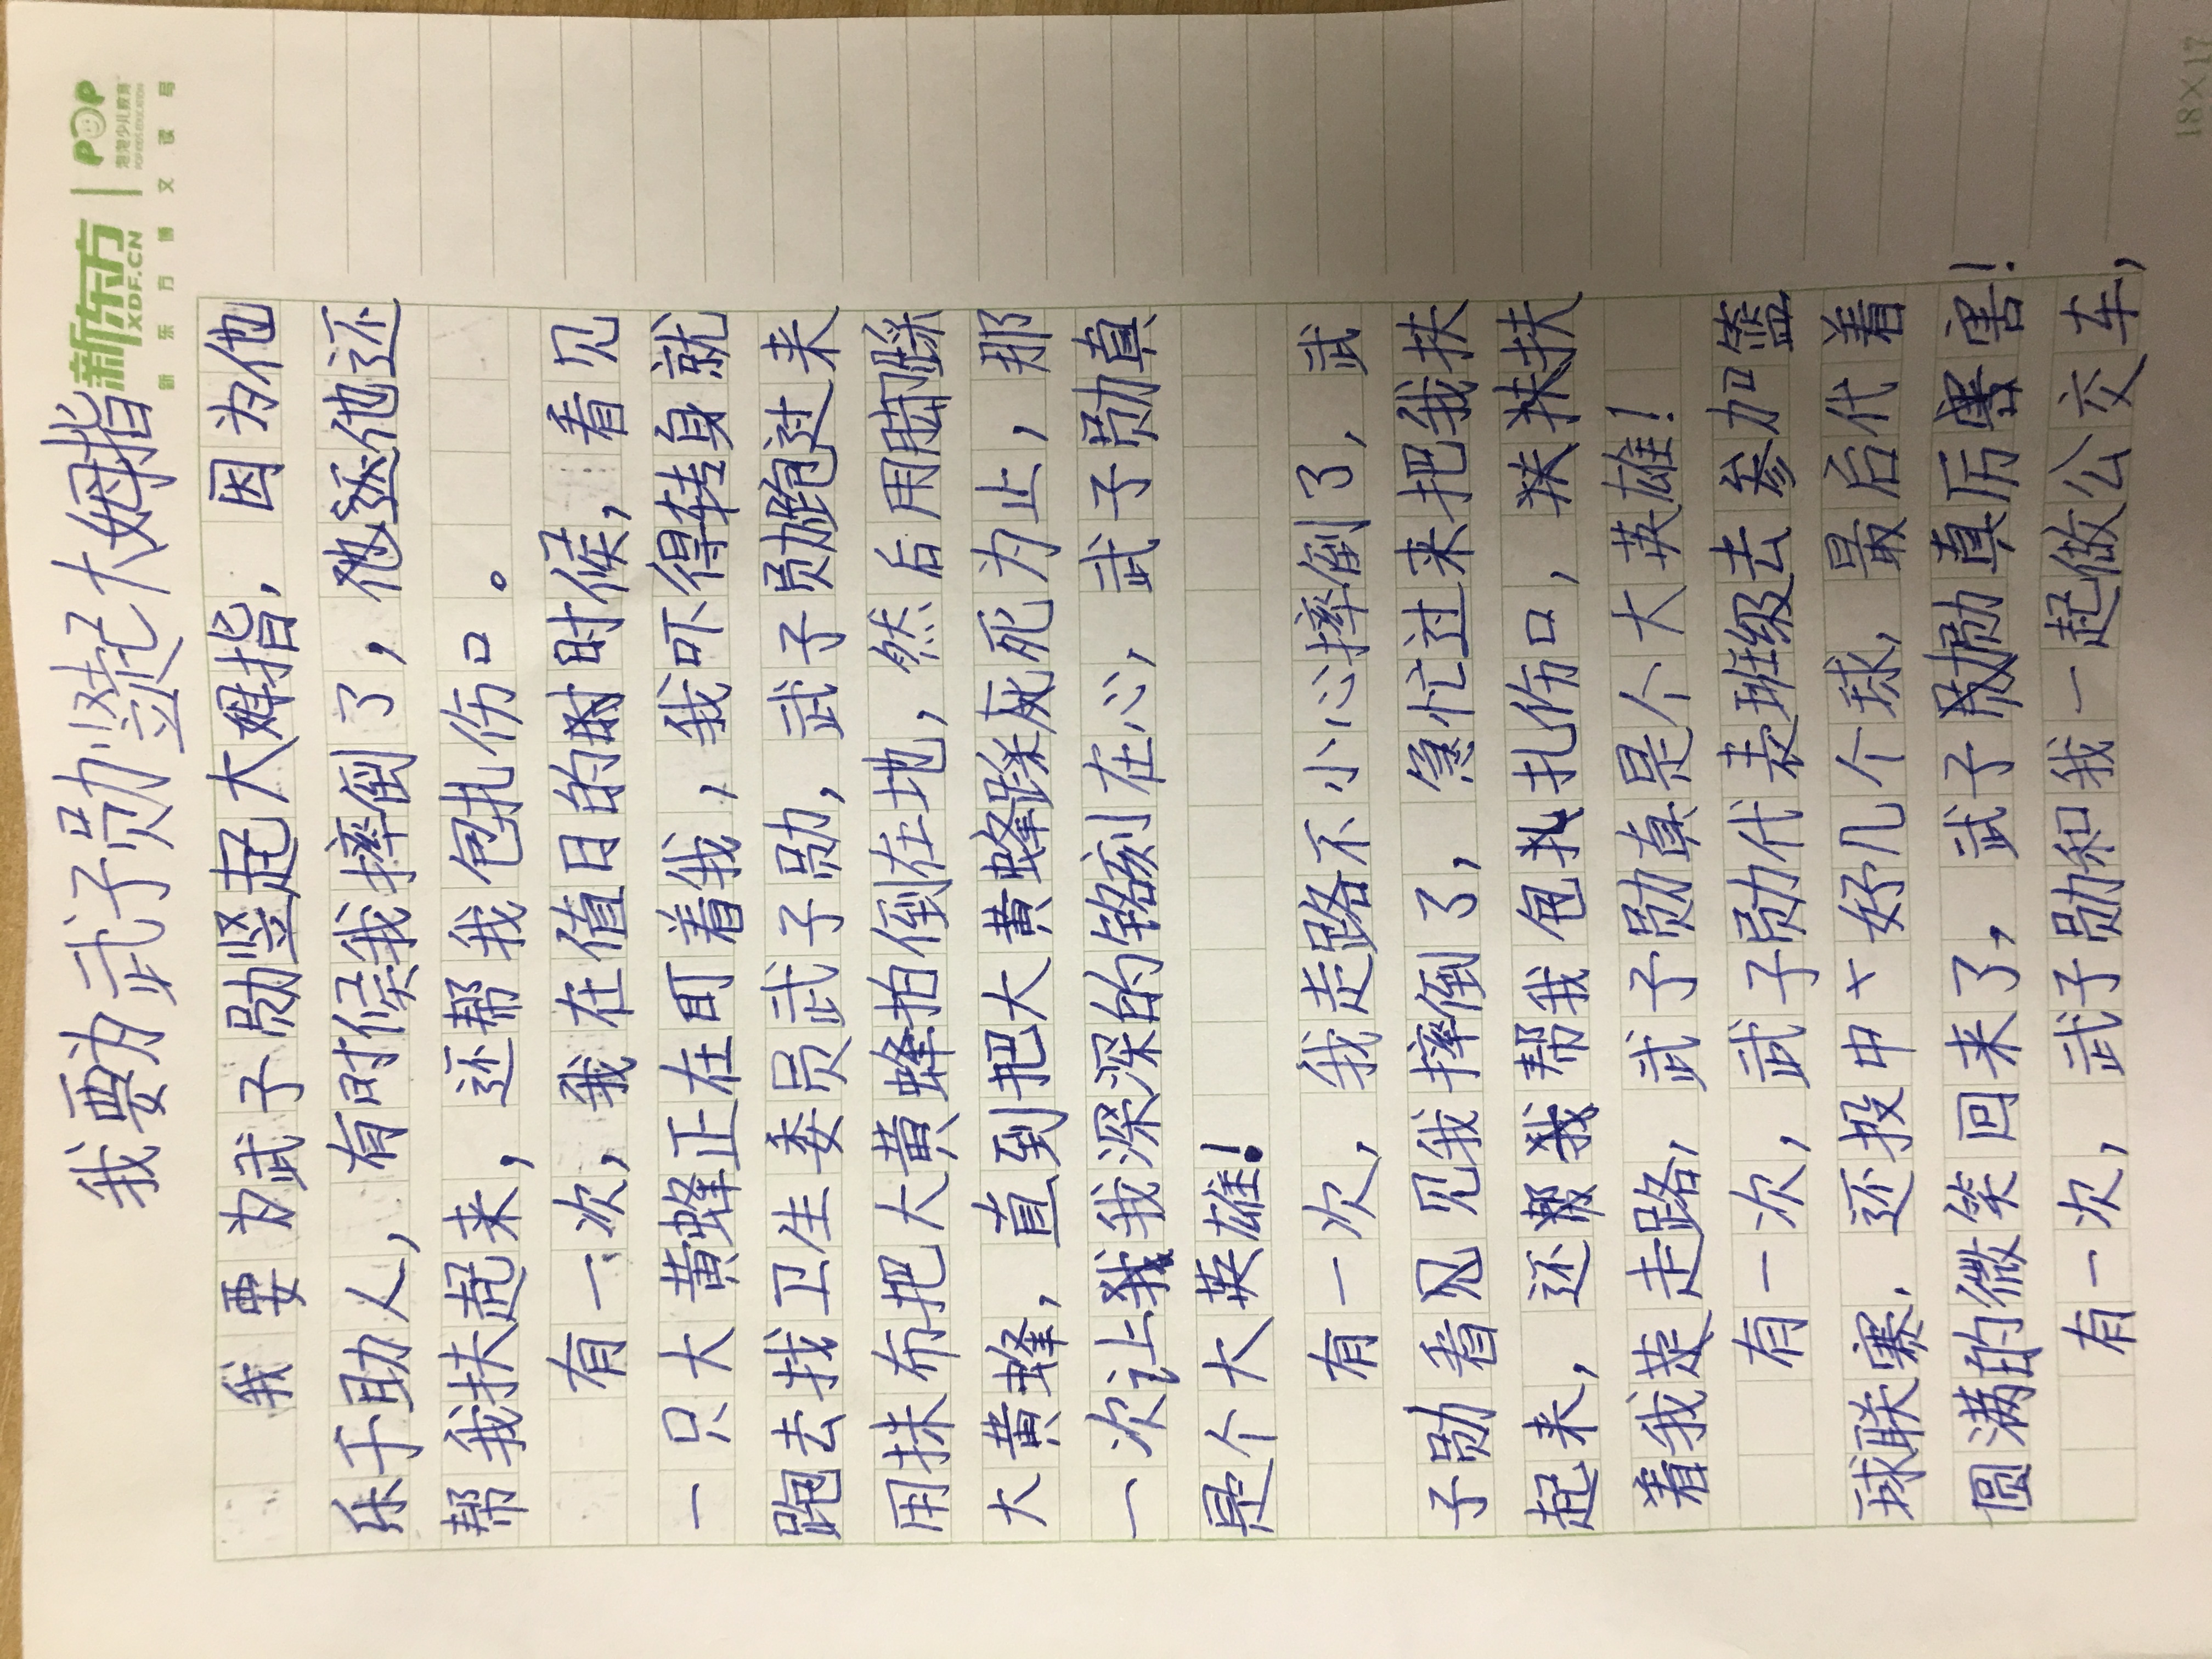 新东方 XDF.CN POP 泡泡少儿教育
新东方博文读写
我要为武子勋竖起大姆指
我要为武子勋竖起大姆指，因为他
乐于助人，有时候我摔倒了，他还
帮我扶起来，还帮我包扎伤口。
有一次，我在值日的时候，看见
一只大黄蜂正在盯着我，我吓得转身就
跑去找卫生委员武子勋，武子勋跑过来
用抹布把大黄蜂拍倒在地，然后用脚踩
大黄蜂，直到把大黄蜂踩死为止，那
一次让我深深的铭刻在心，武子勋真
是个大英雄！
有一次，我走路不小心摔倒了，武
子勋看见我摔倒了，急忙过来把我扶
起来，还帮我包扎伤口，扶
着我走路，武子勋真是个大英雄！
有一次，武子勋代表班级去参加篮
球联赛，还投中好几个球，最后代着
圆满的微笑回来了，武子勋真厉害！
有一次，武子勋和我一起做公交车，
18×17